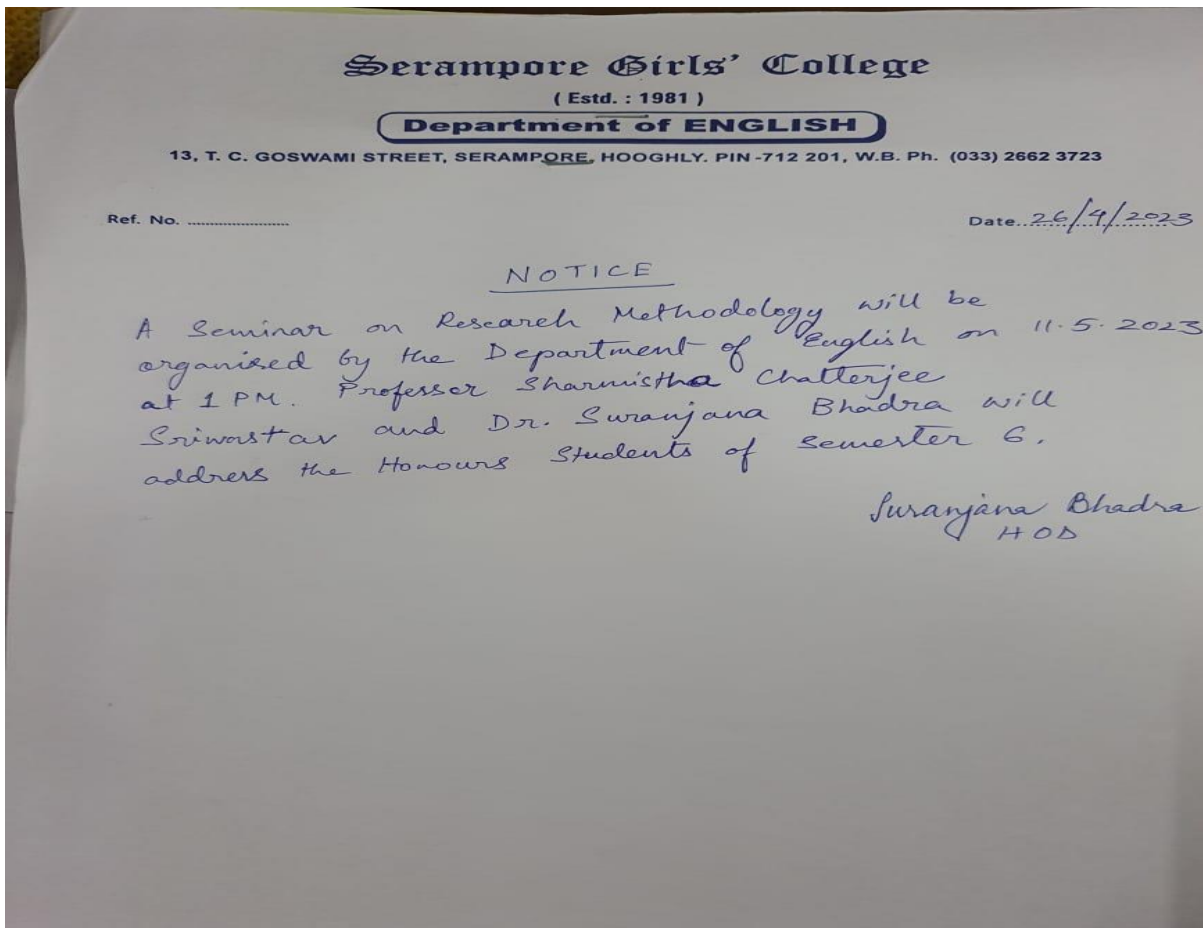 Serampore Girls' College
( Estd. : 1981 )
Department of ENGLISH
13, T. C. GOSWAMI STREET, SERAMPORE, HOOGHLY. PIN -712 201, W.B. Ph. (033) 2662 3723
Ref. No. ........................ Date..26/4/2023
NOTICE
A Seminar on Research Methodology will be
organised by the Department of English on 11.5.2023
at 1 PM. Professor Sharmistha Chatterjee
Sriwastav and Dr. Suranjana Bhadra will
address the Honours Students of Semester 6.
Suranjana Bhadra
HOD